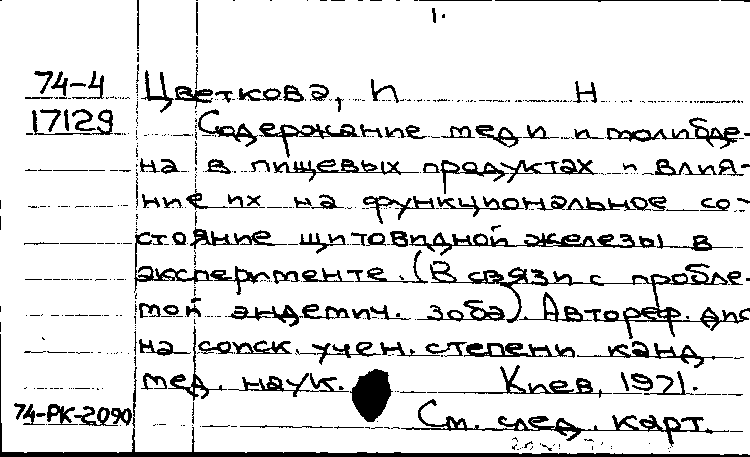 1.
74-4 Цветкова, И Н
17129 Содержание меди и молибде-
на в пищевых продуктах и влия-
ние их на функциональное со-
стояние щитовидной железы в
эксперименте. (В связи с пробле-
мой эндемич. зоба). Автореф. дис
на соиск. учен. степени канд.
мед. наук. Киев, 1971.
74-РК-2090 См. след. карт.